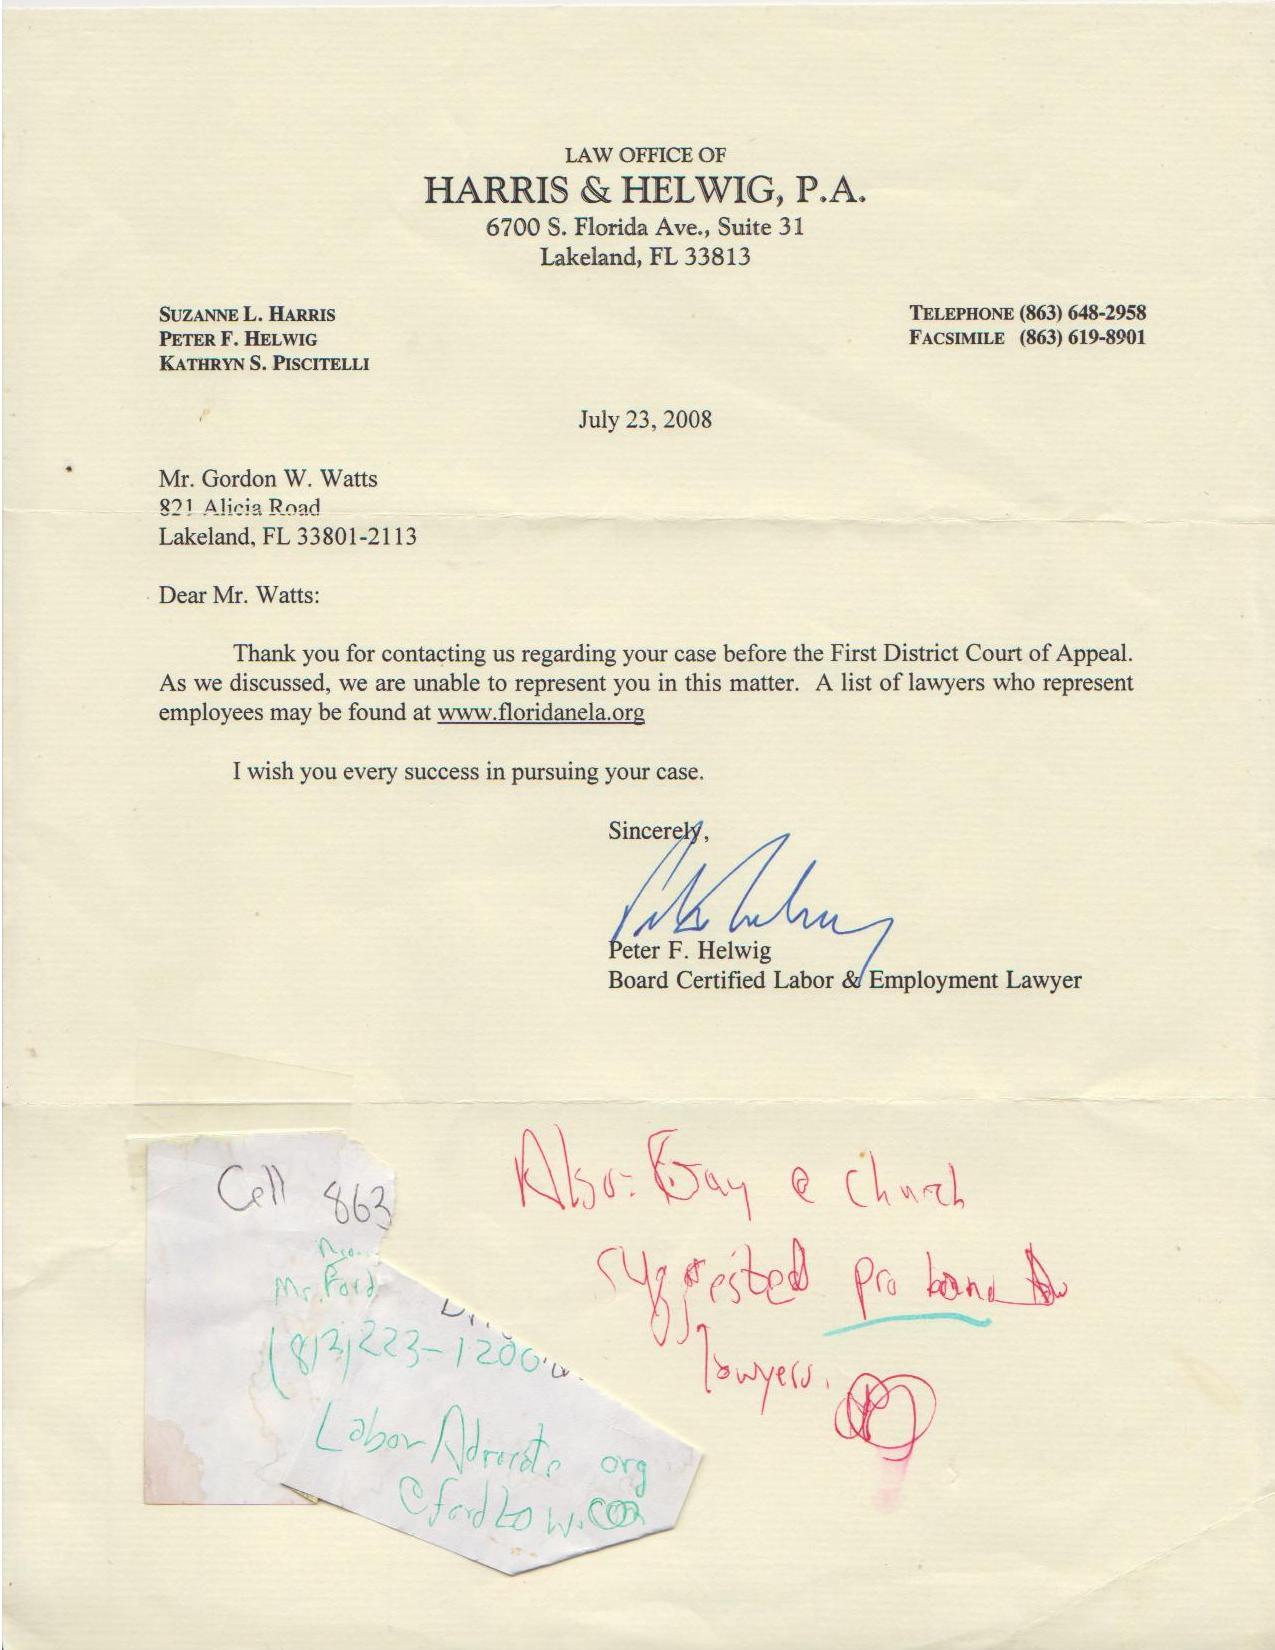 LAW OFFICE OF
HARRIS & HELWIG, P.A.
6700 S. Florida Ave., Suite 31
Lakeland, FL 33813
SUZANNE L. HARRIS
PETER F. HELWIG
KATHRYN S. PISCITELLI
TELEPHONE (863) 648-2958
FACSIMILE (863) 619-8901
July 23, 2008
Mr. Gordon W. Watts
821 Alicia Road
Lakeland, FL 33801-2113
Dear Mr. Watts:
Thank you for contacting us regarding your case before the First District Court of Appeal.
As we discussed, we are unable to represent you in this matter. A list of lawyers who represent
employees may be found at www.floridanela.org
I wish you every success in pursuing your case.
Sincerely,
Peter F. Helwig
Board Certified Labor & Employment Lawyer
Also: @ church
suggested pro bono
lawyers.
Cell 863
Mr. Ford
(813) 223-1200
Labor Advocate org
@fordLaw.